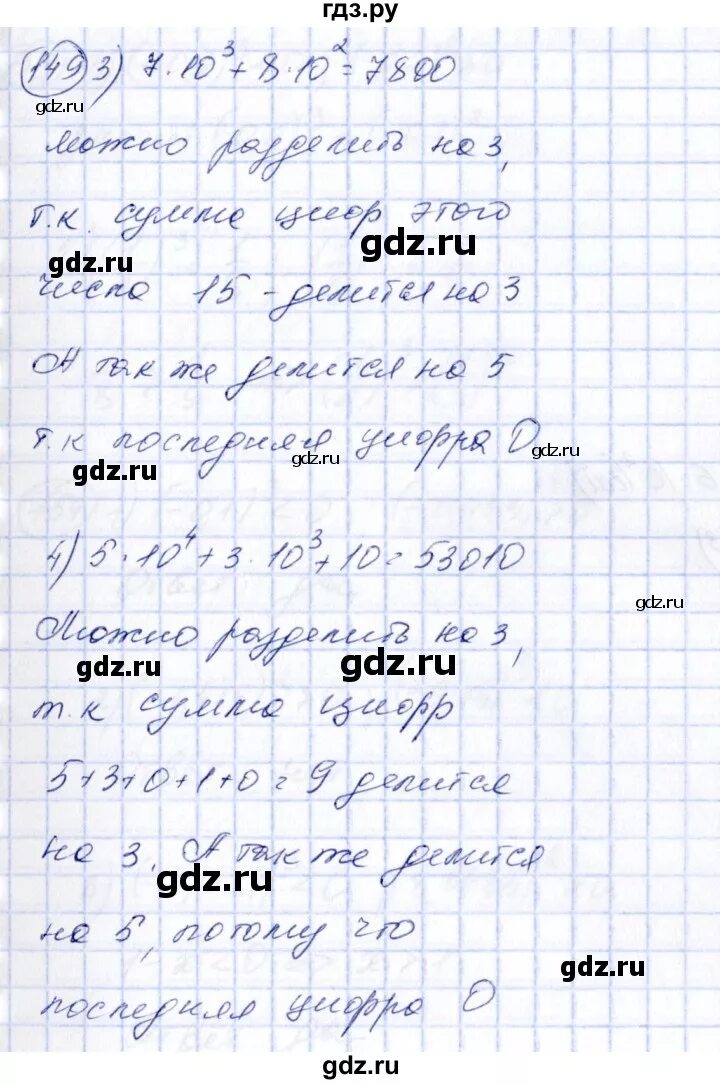 гдз.ру
149 3) 7·10³ + 8·10² = 7800
gdz.ru
можно разделить на 3,
т.к. сумма цифр этого
gdz.ru
gdz.ru
числа 15 - делится на 3
А так же делится на 5
т.к последняя цифра 0
gdz.ru
gdz.ru
4) 5·10⁴ + 3·10³ + 10 = 53010
gdz.ru
Можно разделить на 3,
gdz.ru
gdz.ru
т.к сумма цифр
5+3+0+1+0 = 9 делится
на 3. А так же делится
gdz.ru
на 5, потому что
gdz.ru
последняя цифра 0
gdz.ru